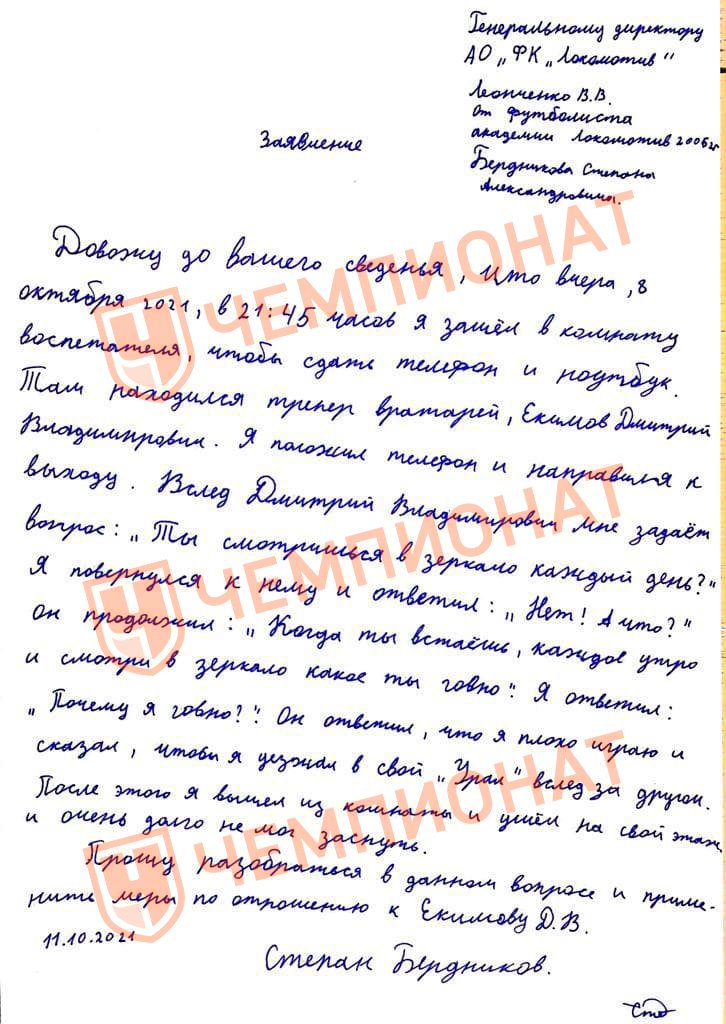 Генеральному директору
АО „ФК „Локомотив"
Леонченко В.В.
от футболиста
академии Локомотив 2006 гр
Бердникова Степана
Александровича.
Заявление
Довожу до вашего сведенья, что вчера, 8
октября 2021, в 21:45 часов я зашёл в комнату
воспетателя, чтобы сдать телефон и ноутбук.
Там находился тренер вратарей, Екимов Дмитрий
Владимирович. Я положил телефон и направился к
выходу. Вслед Дмитрий Владимирович мне задаёт
вопрос: „Ты смотришься в зеркало каждый день?"
Я повернулся к нему и ответил: „Нет! А что?"
Он продолжил: „Когда ты встаёшь, каждое утро
и смотри в зеркало какое ты говно". Я ответил:
„Почему я говно?". Он ответил, что я плохо играю и
сказал, чтобы я уезжал в свой „Урал" вслед за другом.
После этого я вышел из комнаты и ушёл на свой этаж
и очень долго не мог заснуть.
Прошу разобраться в данном вопросе и приме-
нить меры по отношению к Екимову Д.В.
11.10.2021
Степан Бердников.
ЧЕМПИОНАТ
ЧЕМПИОНАТ
ЧЕМПИОНАТ